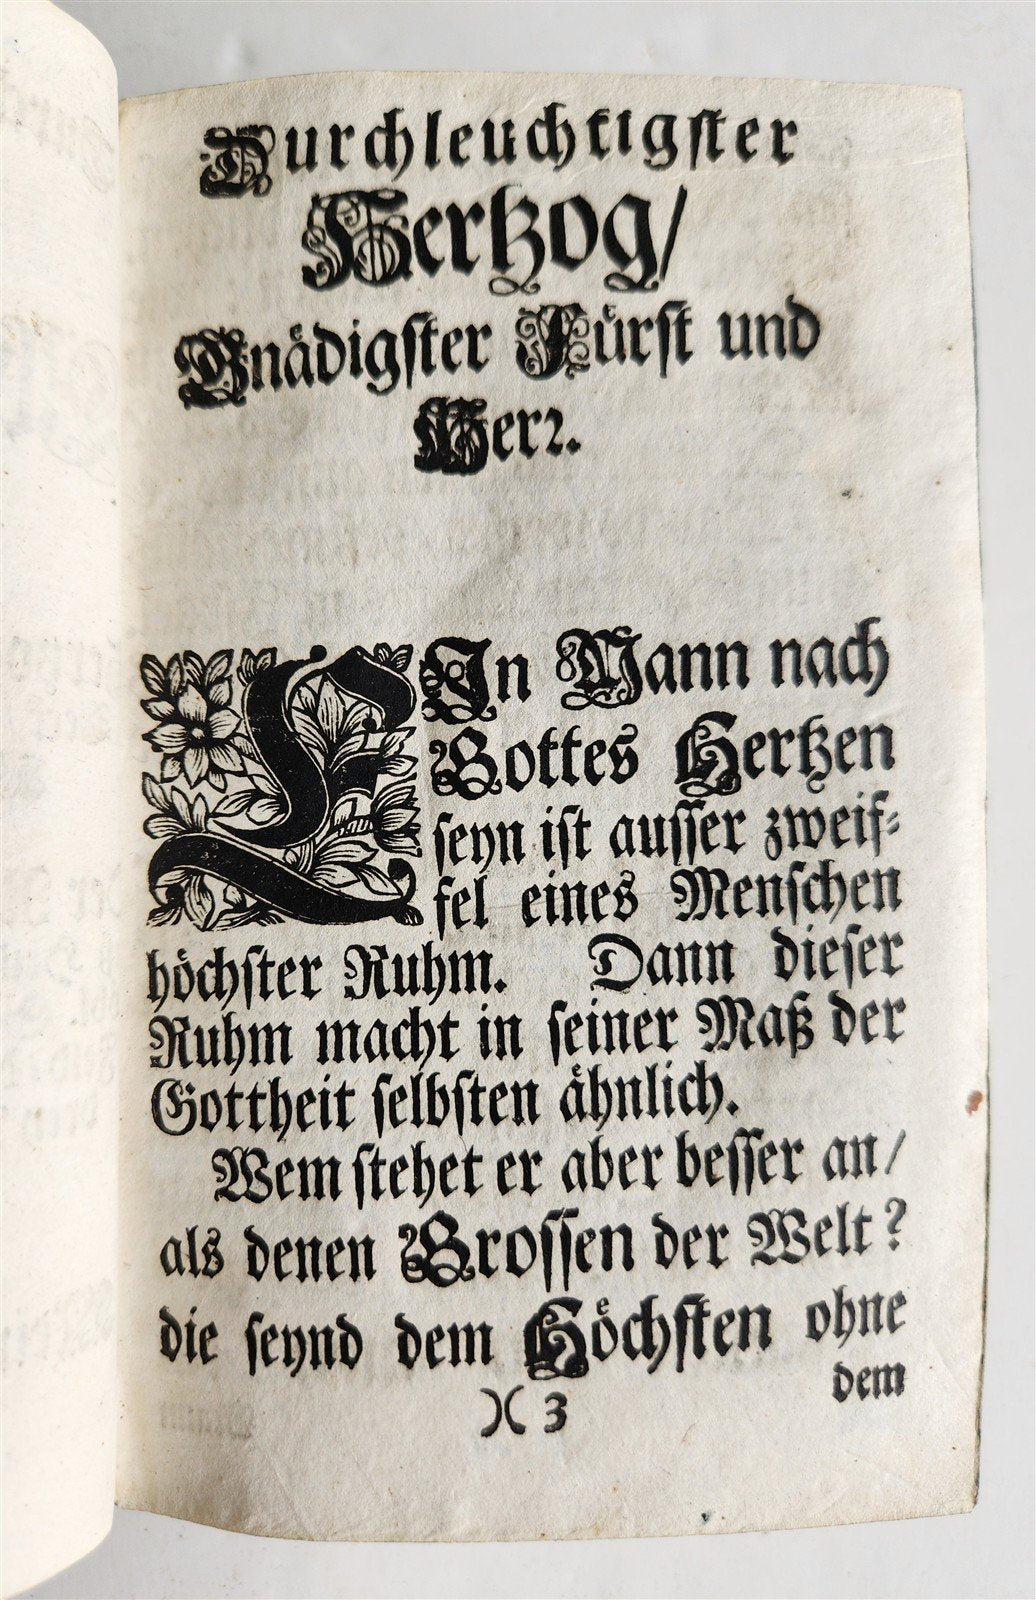 Durchleuchtigster
Hertzog/
Gnädigster Fürst und
Herꝛ.
EIn Mann nach
Gottes Hertzen
seyn ist ausser zweif⸗
fel eines Menschen
höchster Ruhm. Dann dieser
Ruhm macht in seiner Maß der
Gottheit selbsten ähnlich.
Wem stehet er aber besser an/
als denen Grossen der Welt?
die seynd dem Höchsten ohne
dem
)( 3